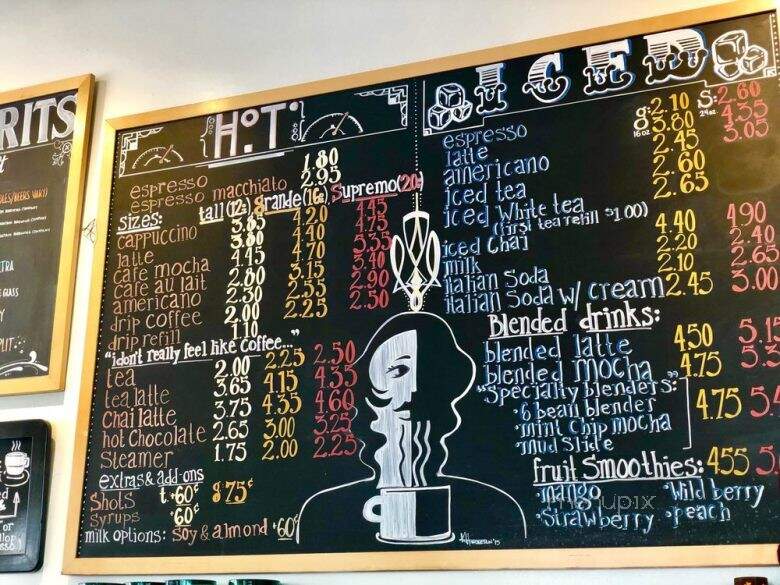 RITS
HOT
espresso 1.80
espresso macchiato 2.95
sizes: tall(12oz) grande(16oz) supremo(20oz)
cappuccino 3.85 4.20 4.45
latte 3.80 4.40 4.75
café mocha 4.45 4.70 5.35
café au lait 2.80 3.15 3.40
americano 2.30 2.55 2.90
drip coffee 2.00 2.25 2.50
drip refill 1.10
"i don't really feel like coffee..."
tea 2.00 2.25 2.50
tea latte 3.65 4.15 4.35
chai latte 3.75 4.35 4.60
hot chocolate 2.65 3.00 3.25
steamer 1.75 2.00 2.25
extras & add-ons
shots t +60¢ g 75¢
syrups +60¢
milk options: soy & almond +60¢
ICED
g: 16oz s: 24oz
espresso 2.10 2.60
latte 3.80 4.35
americano 2.45 3.05
iced tea 2.60
iced white tea 2.65
(first tea refill $1.00)
iced chai 4.40 4.90
milk 2.20 2.40
italian soda 2.10 2.65
italian soda w/ cream 2.45 3.00
Blended drinks:
blended latte 4.50 5.15
blended mocha 4.75 5.3
"specialty blenders:" 4.75
·6 bean blender
mint chip mocha
mud slide
fruit smoothies: 4.55
·mango ·wild berry
·strawberry ·peach